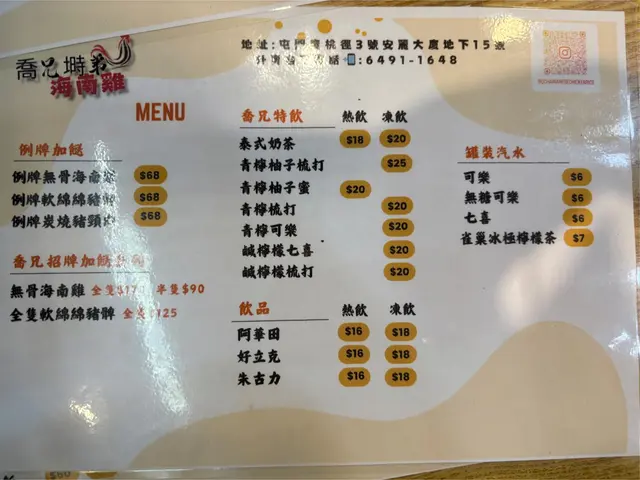 喬兄塒弟
海南雞
地址:屯門 桃徑3號安麗大廈地下15號
:6491-1648
MENU
例牌加餸
例牌無骨海南 $68
例牌軟綿綿豬 $68
例牌炭燒豬頸 $68
喬兄招牌加餸
無骨海南雞 全隻 半隻$90
全隻軟綿綿豬髀 全 $125
喬兄特飲 熱飲 凍飲
泰式奶茶 $18 $20
青檸柚子梳打 $25
青檸柚子蜜 $20
青檸梳打 $20
青檸可樂 $20
鹹檸檬七喜 $20
鹹檸檬梳打 $20
飲品 熱飲 凍飲
阿華田 $16 $18
好立克 $16 $18
朱古力 $16 $18
罐裝汽水
可樂 $6
無糖可樂 $6
七喜 $6
雀巢冰極檸檬茶 $7